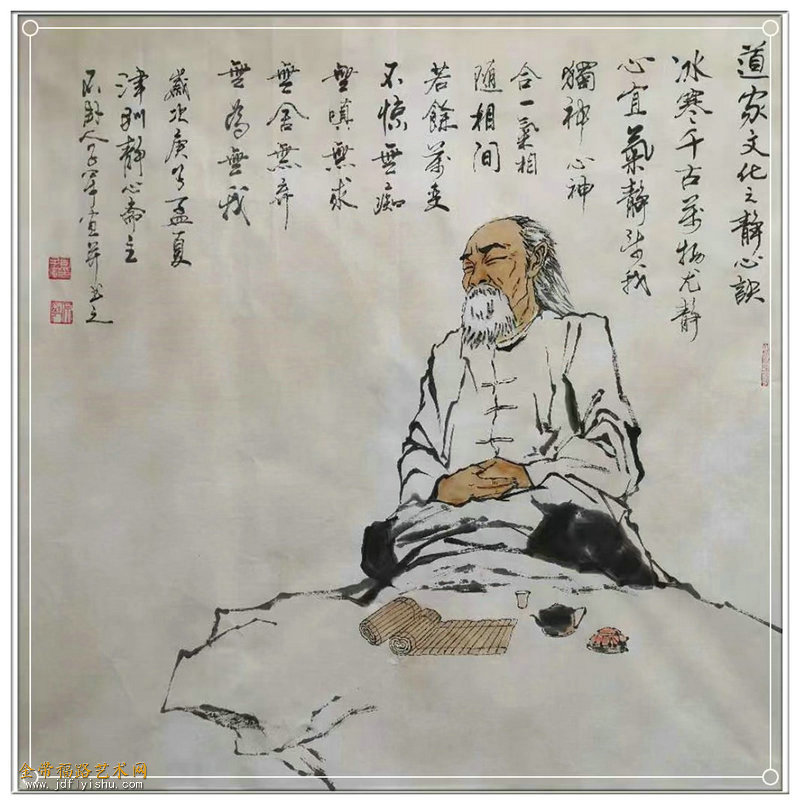 道家文化之靜心訣
冰寒千古萬物尤靜
心宜氣靜望我
獨神心神
合一氣相
隨相间
若餘萬变
不惊無痴
無嗔無求
無舍無弃
無為無我
歲次庚子孟夏
津圳靜心斋主
人子军画并书之
金帝福路艺术网
www.jdflyishu.com